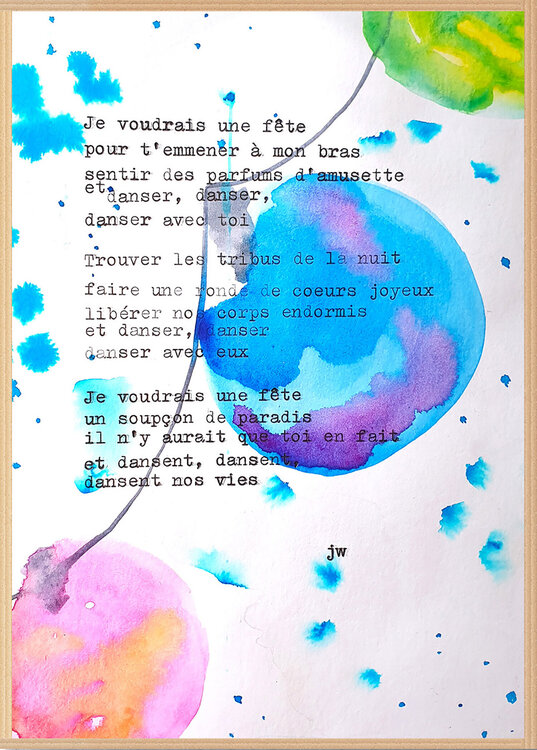 Je voudrais une fête
pour t'emmener à mon bras
sentir des parfums d'amusette
et danser, danser,
danser avec toi
Trouver les tribus de la nuit
faire une ronde de coeurs joyeux
libérer nos corps endormis
et danser, danser
danser avec eux
Je voudrais une fête
un soupçon de paradis
il n'y aurait que toi en fait
et dansent, dansent,
dansent nos vies
jw